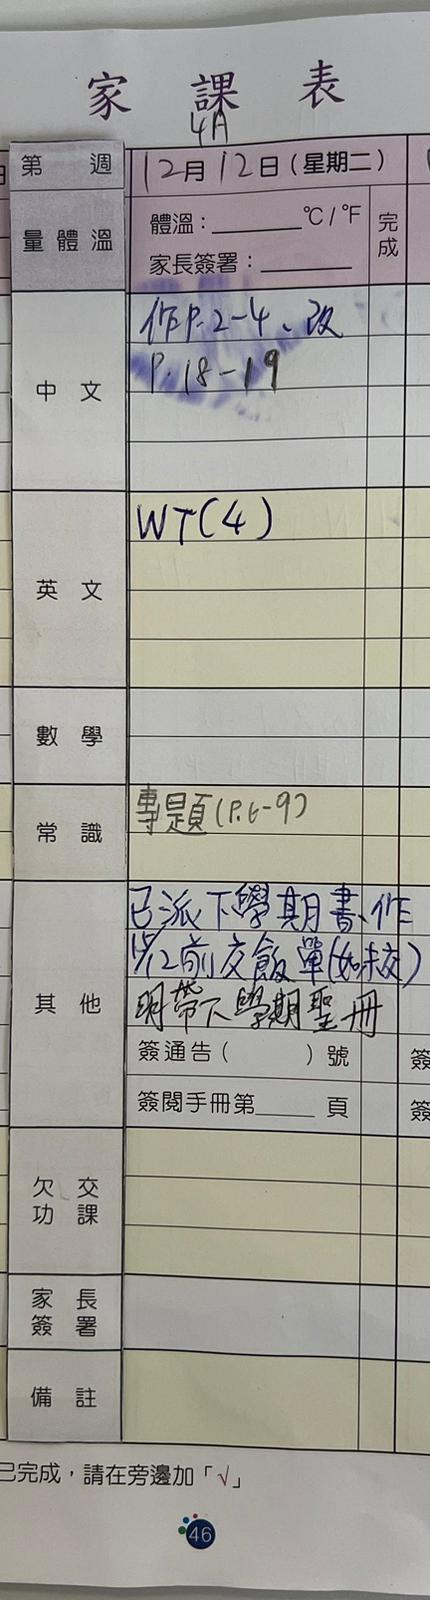 家課表
4A
第 週
12月12日(星期二)
量體溫
體溫：______°C/°F
家長簽署：______
完成
中文
作P.2-4、改
P.18-19
英文
WT(4)
數學
常識
專題(P.6-9)
其他
已派下學期書、作
前交飯單(如未交)
明帶下學期聖冊
簽通告( )號
簽閱手冊第____頁
簽
簽
欠交
功課
家長
簽署
備註
已完成，請在旁邊加「√」
46